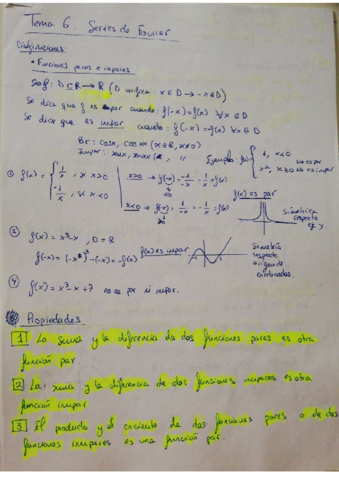 Tema 6. Series de Fourier
Definiciones:
• Funciones pares e impares
Sea f: D ⊆ R → R (D verifica: x ∈ D → -x ∈ D)
Se dice que f es par cuando: f(-x) = f(x) ∀x ∈ D
Se dice que es impar cuando: f(-x) = -f(x) ∀x ∈ D
Par: cosx, cos αx (α ∈ R, α≠0)
Impar: senx,
Ejemplo: f(x) = { 1, x<0
x², x>0 no es impar
no es par
① f(x) = { 1/x, si x>0
-1/x, si x<0
x>0 → f(-x) = -1/-x = 1/x = f(x)
x<0 → f(-x) = 1/-x = -1/x = f(x)
f(x) es par
Simetría
respecto
eje y.
f(x) = x³-x, D = R
f(-x) = (-x³) - (-x) = -f(x)
f(x) es impar
Simetría
respecto
origen de
coordenadas.
f(x) = x³-x+7 no es par ni impar.
Propiedades
1 La suma y la diferencia de dos funciones pares es otra
función par
2 La suma y la diferencia de dos funciones impares es otra
función impar
3 El producto y el cociente de dos funciones pares o de dos
funciones impares es una función par.